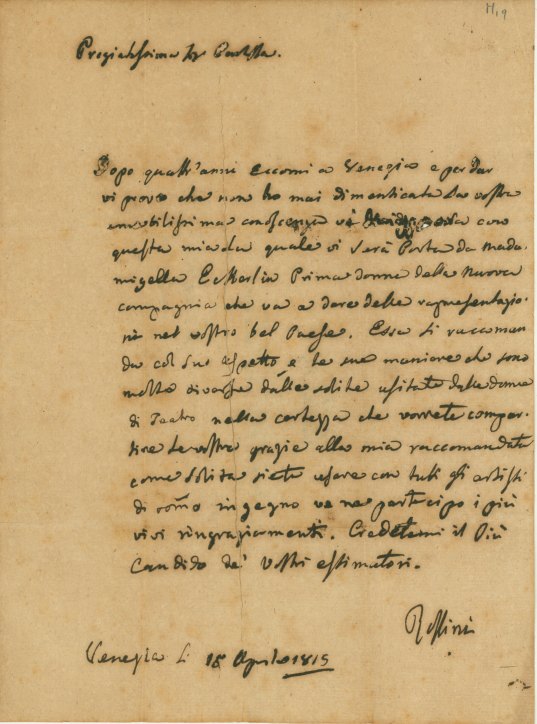 H,9
Pregiatissima Sig Contessa.
Dopo quatt'anni eccomi a Venezia e per dar
vi prova che non ho mai dimenticata la vostra
amabilissima conoscenza vi con
questa mia la quale vi serà Porta da Mada
migella Eckerlin Prima donna della Nuova
compagnia che va a dare delle rapresentazio-
ni nel vostro bel Paese. Essa si raccoman
da col suo aspetto, e le sue maniere che sono
molto diverse dalle solite usitate dalle donne
di Teatro nella certezza che vorrete compar-
tire le vostre grazie alla mia raccomandata
come solita siete usare con tutti gli artisti
di sommo ingegno ve ne partecipo i più
vivi ringraziamenti. Credetemi il Più
Candido de' Vostri estimatori.
Rossini
Venezia Li 18 Aprile 1815